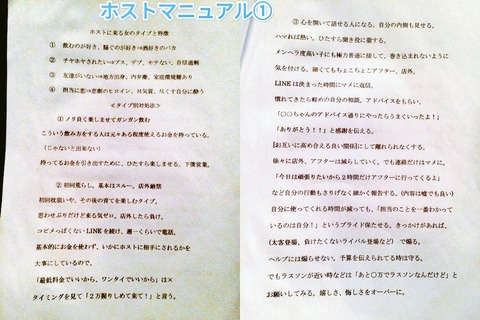 ホストマニュアル①
ホストに来る女のタイプと特徴
① 飲むのが好き、騒ぐのが好き⇒酒好きのバカ
② チヤホヤされたい⇒ブス、デブ、モテない、自信過剰
③ 友達がいない⇒地方出身、内弁慶、家庭環境難あり
④ 担当に恋⇒悲劇のヒロイン、M気質、尽くす自分に酔う
≪タイプ別対処法≫
① ノリ良く楽しませてガンガン飲む
こういう飲み方をする人は元々ある程度使えるお金を持っている。
(じゃないと出来ない)
持ってるお金を引き出すために、ひたすら楽しませる。下僕営業。
② 初回荒らし、基本はスルー。店外厳禁
初回枕狙いや、その後の育てを楽しむタイプ。
思わせぶりだけど来る気ゼロ。店外したら負け。
コピメっぽくないLINEを続け、週一くらいで電話。
基本的にお金を使わず、いかにホストに相手にされるかを
大事にしているので、
「最低料金でいいから、ワンタイでいいから」は×
タイミングを見て「2万握りしめて来て!」と言う。
③ 心を開いて話せる人になる。自分の内側も見せる。
ハマれば熱い。ひたすら聞き役に徹する。
メンヘラ度高い子にも極力普通に接して、巻き込まれないように
気を付ける。細くてもちょこちょこアフター、店外。
LINEは決まった時間にマメに返信。
慣れてきたら軽めの自分の相談。アドバイスをもらい、
「〇〇ちゃんのアドバイス通りにやったらうまくいったよ!」
「ありがとう!!」と感謝を伝える。
[お互いに高め合える良い関係]にして離れられなくする。
徐々に店外、アフターは減らしていく。でも連絡だけはマメに。
「今日は頑張りたいから2時間だけアフターに行ってくるよ」
など自分の行動もさりげなく細かく報告する。(内容は嘘でも良い)
自分に使ってくれる時間が減っても、「担当のことを一番わかって
いるのは自分!」というプライド保たせる。きっかけがあれば、
(太客登場、負けたくないライバル登場など) で煽る。
ヘルプには煽らせない。予算を伝えられてる時は守る。
でもラスソンが近い時などは「あと〇万でラスソンなんだけど」と
お願いしてみる。嬉しさ、悔しさをオーバーに。